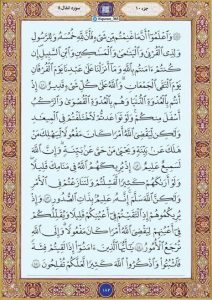 جزء ۱۰
سوره انفال ۸
وَٱعْلَمُوٓا۟ أَنَّمَا غَنِمْتُم مِّن شَىْءٍ فَأَنَّ لِلَّهِ خُمُسَهُۥ وَلِلرَّسُولِ
وَلِذِى ٱلْقُرْبَىٰ وَٱلْيَتَٰمَىٰ وَٱلْمَسَٰكِينِ وَٱبْنِ ٱلسَّبِيلِ إِن
كُنتُمْ ءَامَنتُم بِٱللَّهِ وَمَآ أَنزَلْنَا عَلَىٰ عَبْدِنَا يَوْمَ ٱلْفُرْقَانِ
يَوْمَ ٱلْتَقَى ٱلْجَمْعَانِ وَٱللَّهُ عَلَىٰ كُلِّ شَىْءٍ قَدِيرٌ ﴿٤١﴾ إِذْ
أَنتُم بِٱلْعُدْوَةِ ٱلدُّنْيَا وَهُم بِٱلْعُدْوَةِ ٱلْقُصْوَىٰ وَٱلرَّكْبُ
أَسْفَلَ مِنكُمْ وَلَوْ تَوَاعَدتُّمْ لَٱخْتَلَفْتُمْ فِى ٱلْمِيعَٰدِ
وَلَٰكِن لِّيَقْضِىَ ٱللَّهُ أَمْرًا كَانَ مَفْعُولًا لِّيَهْلِكَ مَنْ
هَلَكَ عَنۢ بَيِّنَةٍ وَيَحْيَىٰ مَنْ حَىَّ عَنۢ بَيِّنَةٍ وَإِنَّ ٱللَّهَ
لَسَمِيعٌ عَلِيمٌ ﴿٤٢﴾ إِذْ يُرِيكَهُمُ ٱللَّهُ فِى مَنَامِكَ قَلِيلًا
وَلَوْ أَرَىٰكَهُمْ كَثِيرًا لَّفَشِلْتُمْ وَلَتَنَٰزَعْتُمْ فِى ٱلْأَمْرِ
وَلَٰكِنَّ ٱللَّهَ سَلَّمَ إِنَّهُۥ عَلِيمٌۢ بِذَاتِ ٱلصُّدُورِ ﴿٤٣﴾ وَإِذْ
يُرِيكُمُوهُمْ إِذِ ٱلْتَقَيْتُمْ فِىٓ أَعْيُنِكُمْ قَلِيلًا وَيُقَلِّلُكُمْ
فِىٓ أَعْيُنِهِمْ لِيَقْضِىَ ٱللَّهُ أَمْرًا كَانَ مَفْعُولًا وَإِلَى ٱللَّهِ
تُرْجَعُ ٱلْأُمُورُ ﴿٤٤﴾ يَٰٓأَيُّهَا ٱلَّذِينَ ءَامَنُوٓا۟ إِذَا لَقِيتُمْ فِئَةً
فَٱثْبُتُوا۟ وَٱذْكُرُوا۟ ٱللَّهَ كَثِيرًا لَّعَلَّكُمْ تُفْلِحُونَ ﴿٤٥﴾
۱۸۲